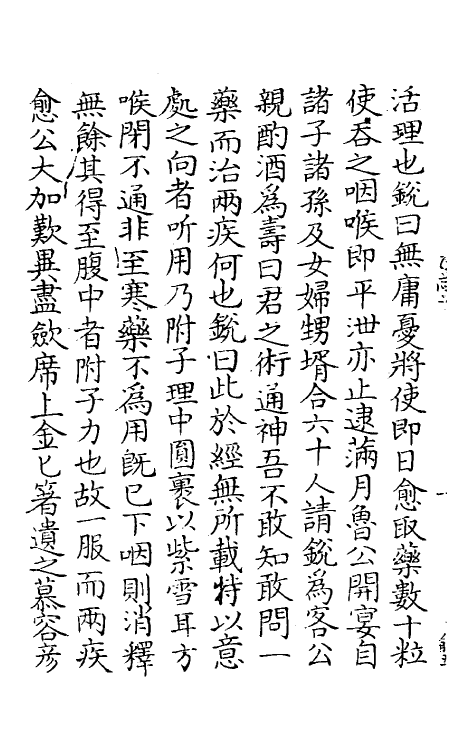 活理也銳曰無庸憂將使即日愈取藥數十粒
使吞之咽喉即平泄亦止逮滿月魯公開宴自
諸子諸孫及女婦甥壻合六十人請銳為客公
親酌酒為壽曰君之術通神吾不敢知敢問一
藥而治兩疾何也銳曰此於經無所載特以意
處之向者所用乃附子理中圓裹以紫雪耳方
喉閉不通非至寒藥不為用旣已下咽則消釋
無餘其得至腹中者附子力也故一服而兩疾
愈公大加歎異盡斂席上金匕箸遺之慕容彥